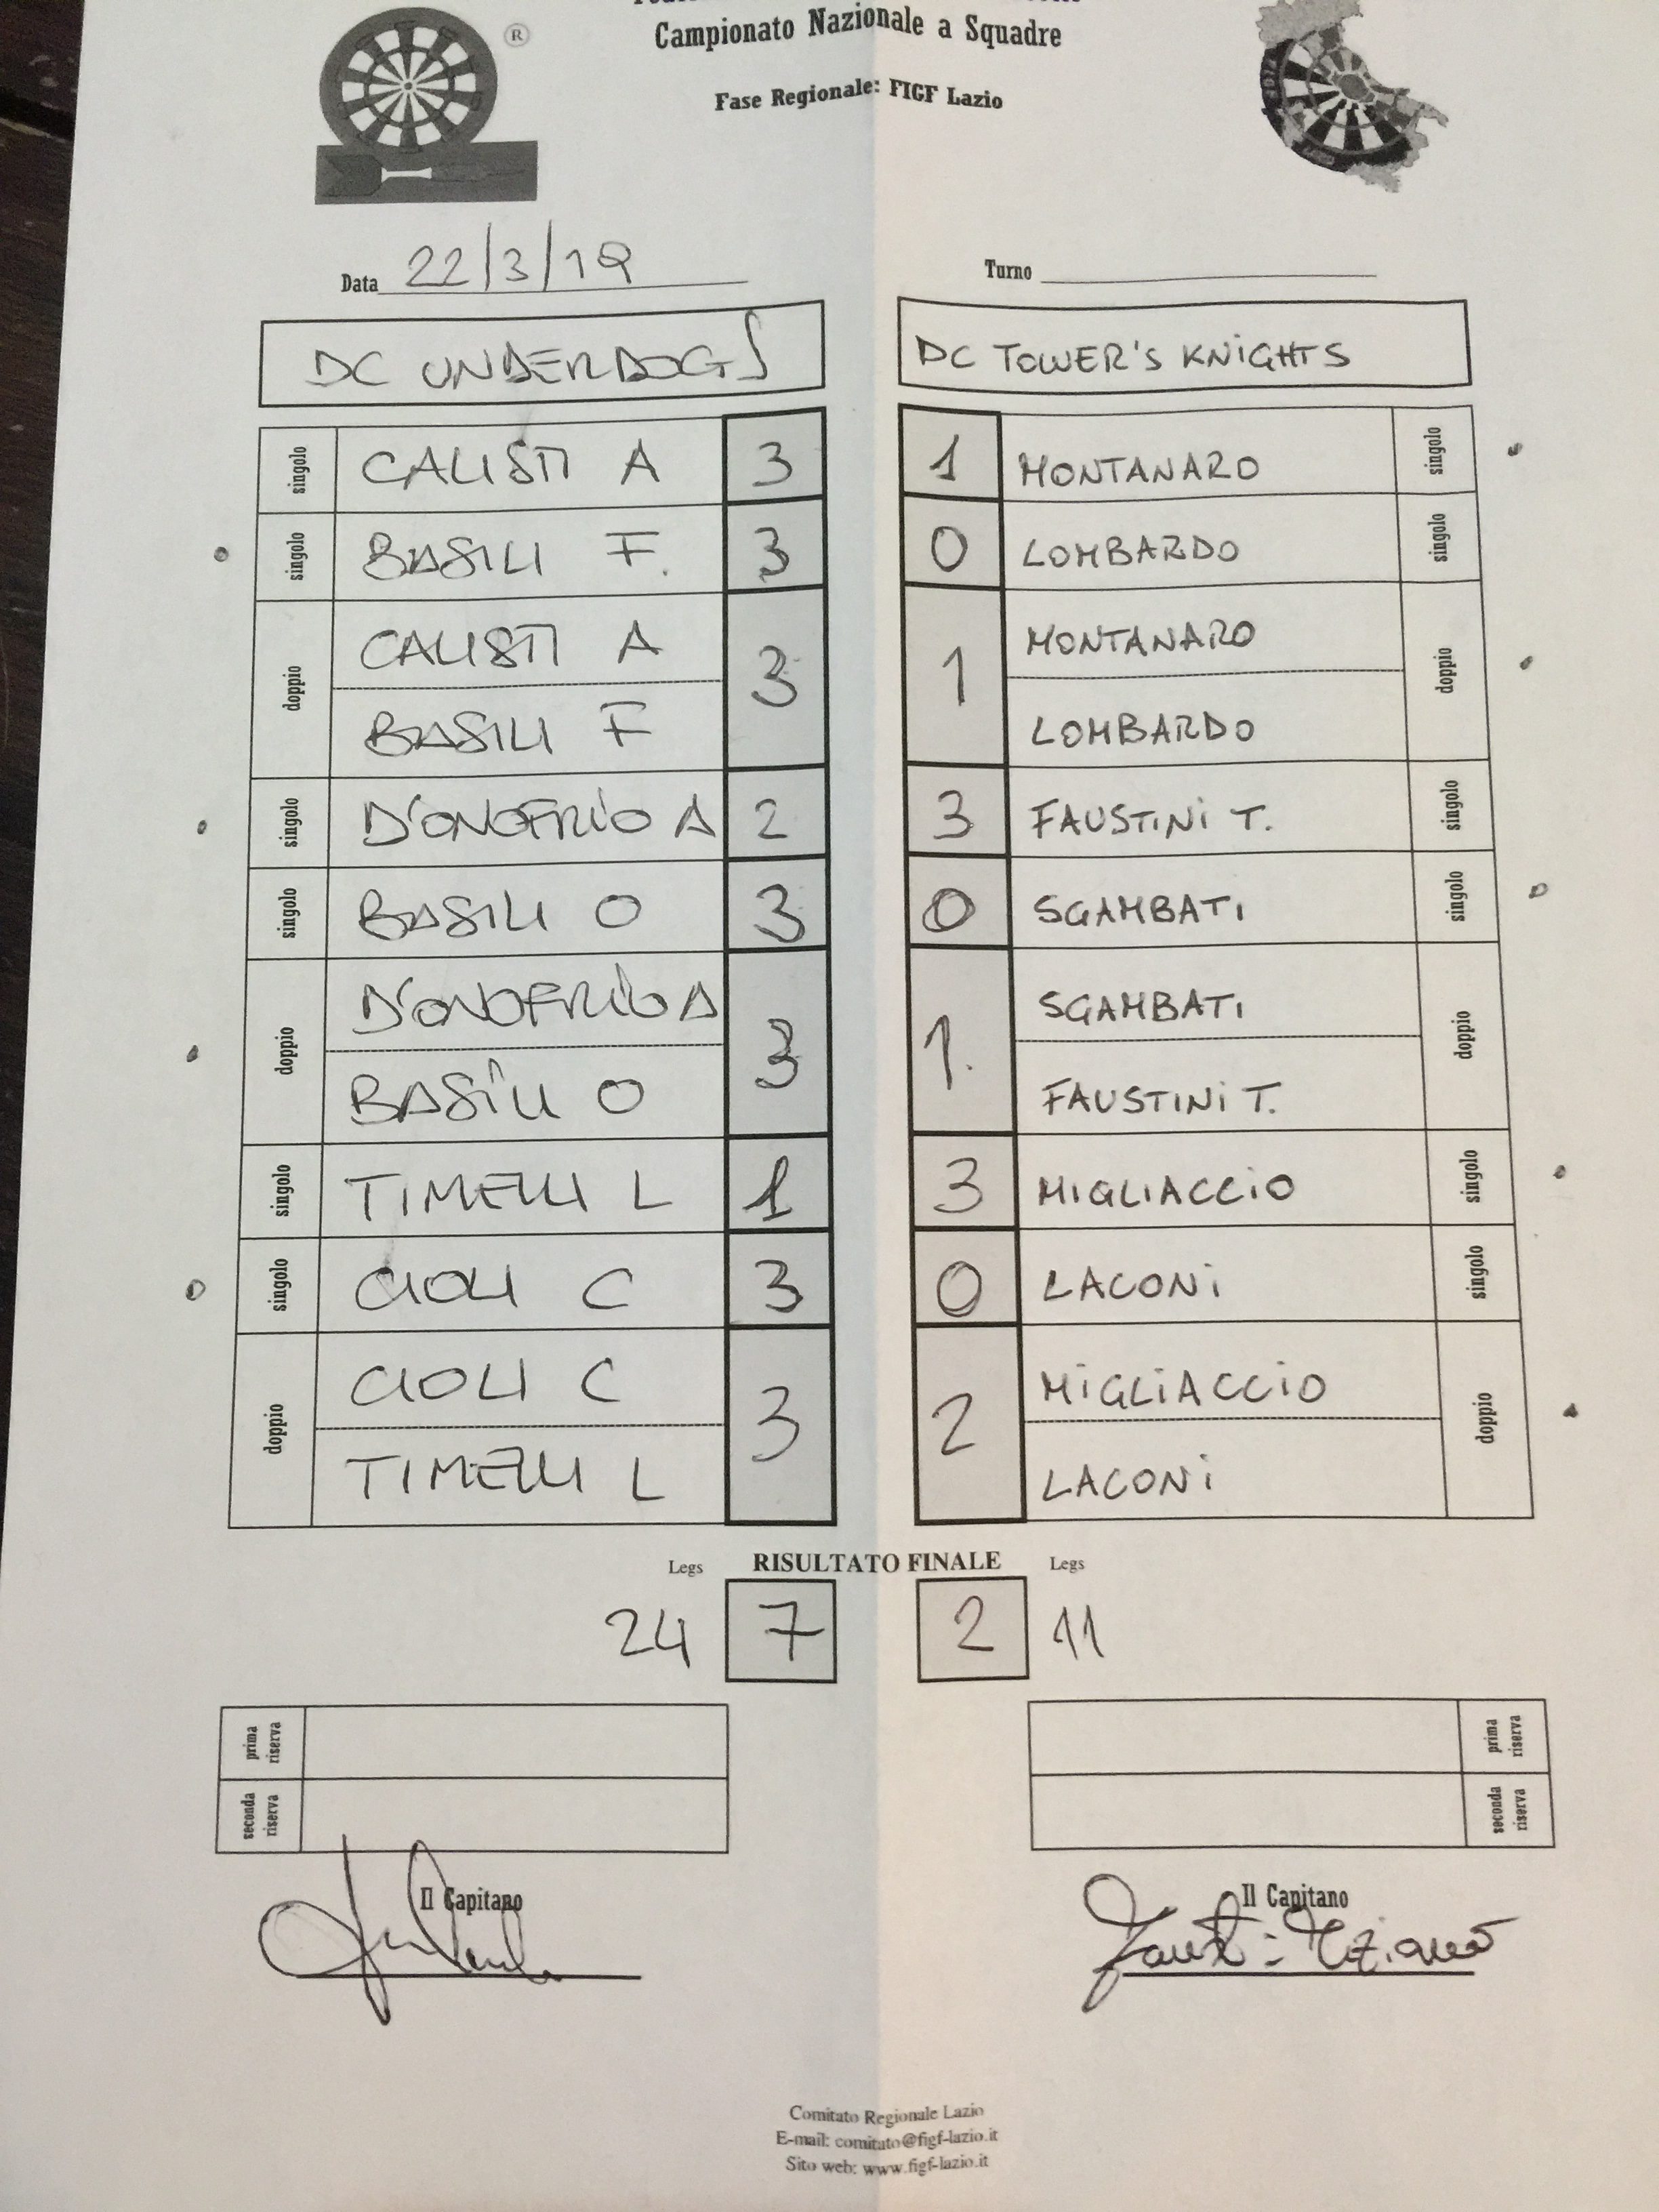 Campionato Nazionale a Squadre
Fase Regionale: FIGF Lazio
®
2017
Data 22/3/19
Turno
DC UNDERDOGS
DC TOWER'S KNiGHTS
singolo CALISTI A 3
1 MONTANARO singolo
singolo BASILI F. 3
0 LOMBARDO singolo
doppio CALISTI A 3
BASILI F
1 MONTANARO doppio
LOMBARDO
singolo D'ONOFRIO A 2
3 FAUSTiNi T. singolo
singolo BASILI O 3
0 SGAMBATI singolo
doppio D'ONOFRIO A 3
BASILI O
1. SGAMBATI doppio
FAUSTiNi T.
singolo TIMELLI L 1
3 MIGLIACCiO singolo
singolo CIOLI C 3
0 LACONi singolo
doppio CIOLI C 3
TIMELLI L
2 MiGLiACCiO doppio
LACONi
Legs RISULTATO FINALE Legs
24 7 2 11
prima riserva
seconda riserva
prima riserva
seconda riserva
Il Capitano
Il Capitano
Comitato Regionale Lazio
E-mail: comitato@figf-lazio.it
Sito web: www.figf-lazio.it